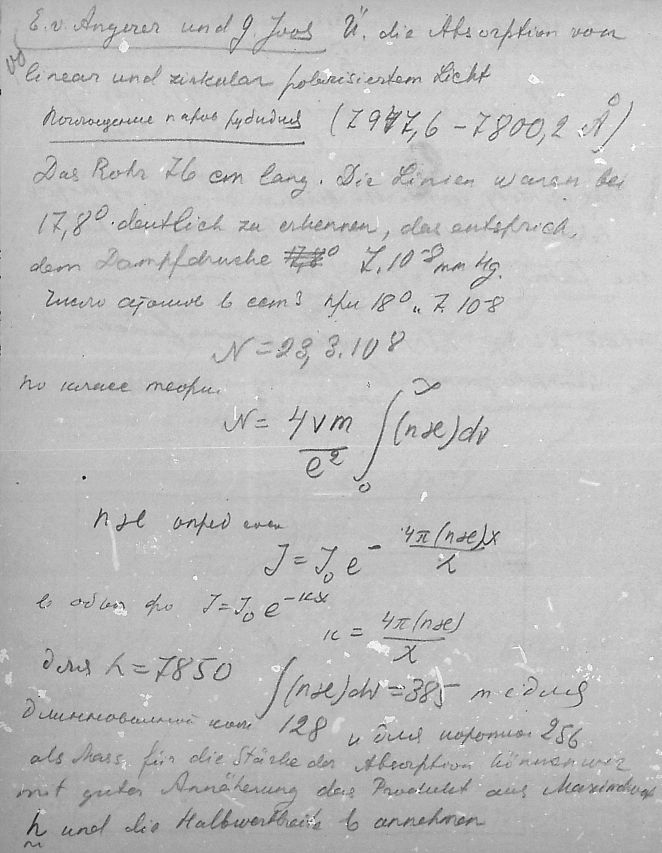 E. v. Angerer und G. Joos Ü. die Absorption von
linear und zirkular polarisiertem Licht
Поглощение паров рубидия (7947,6 – 7800,2 Å)
Das Rohr 76 cm lang. Die Linien waren bei
17,8° deutlich zu erkennen, das entsprich,
dem Dampfdrucke 7.10⁻⁸ mm Hg.
Число атомов в ccm³ при 18° и 7.10-8
N = 23,3.10⁸
по класс теори.
N = 4νm/e² ∫₀^∞ (næ)dν
næ опред
J = J₀ e^(– 4π(næ)x/λ)
в J = J₀ e^(–κx)
κ = 4π(næ)/λ
для λ = 7850
∫(næ)dν = 385 для
длинноволной 128 и для 256
als Mass für die Stärke der Absorption können wir
mit guter Annäherung das Produkt aus
h und die Halbwertbreite b annehmen